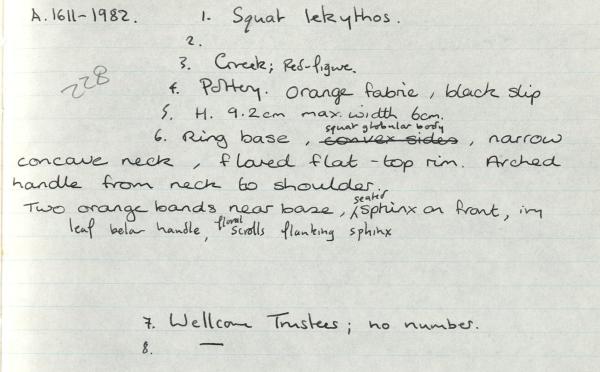 A.1611-1982. 1. Squat lekythos.
2.
3. Greek; Red-figure.
228
4. Pottery. Orange fabric, black slip
5. H. 9.2cm max. width 6cm.
6. Ring base, convex sides squat globular body, narrow
concave neck, flared flat-top rim. Arched
handle from neck to shoulder.
Two orange bands near base, seated sphinx on front, ivy
leaf below handle, floral scrolls flanking sphinx
7. Wellcome Trustees; no number.
8. —